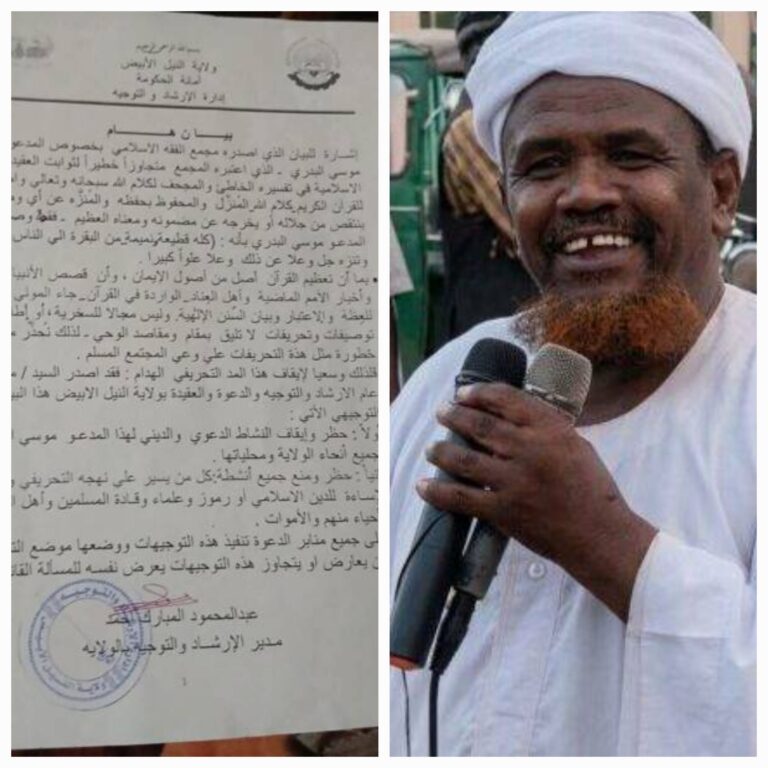 بسم الله الرحمن الرحيم
ولاية النيل الأبيض
أمانة الحكومة
إدارة الإرشاد و التوجيه
بيـــان هـــام
إشارة للبيان الذي اصدره مجمع الفقه الاسلامي بخصوص المدعو
موسي البدري ـ الذي اعتبره المجمع متجاوزاً خطيراً لثوابت العقيد
الاسلامية في تفسيره الخاطئ والمجحف لكلام الله سبحانه وتعالي وا
للقرآن الكريم كلام الله المُنزَّل والمحفوظ بحفظه والمنزه عن أي
ينتقص من جلاله أو يخرجه عن مضمونه ومعناه العظيم ـ فقط وص
المدعو موسي البدري بأنه : (كله قطيعة،نميمة،من البقرة الي الناس
وتنزه جل وعلا عن ذلك وعلا علواً كبيرا .
بما أن تعظيم القرآن أصل من أصول الإيمان ، وأن قصص الأنبيا
وأخبار الامم الماضية وأهل العناد الواردة في القرآن جاء المولي
للعظة والاعتبار وبيان السنن الإلهية وليس مجالا للسخرية، أو إطا
توصيفات وتحريفات لا تليق بمقام ومقاصد الوحي ـ لذلك نُحذّر م
خطورة مثل هذة التحريفات علي وعي المجتمع المسلم .
فلذلك وسعيا لإيقاف هذا المد التحريفي الهدام : فقد اصدر السيد / م
عام الارشاد والتوجيه والدعوة والعقيدة بولاية النيل الابيض هذا البي
التوجيهي الأتي :
ولاً : حظر وإيقاف النشاط الدعوي والديني لهذا المدعـو موسي ا
جميع أنحاء الولاية ومحلياتها .
نياً : حظر ومنع جميع أنشطة:كل من يسير علي نهجه التحريفي و
لإساءة للدين الاسلامي أو رموز وعلماء وقـادة المسلمين وأهل ا
حياء منهم والأموات .
لى جميع منابر الدعوة تنفيذ هذه التوجيهات ووضعها موضع الت
ن يعارض او يتجاوز هذه التوجيهات يعرض نفسه للمسألة القان
عبدالمحمود المبارك
مدير الإرشـاد والتوجيه بالولايه